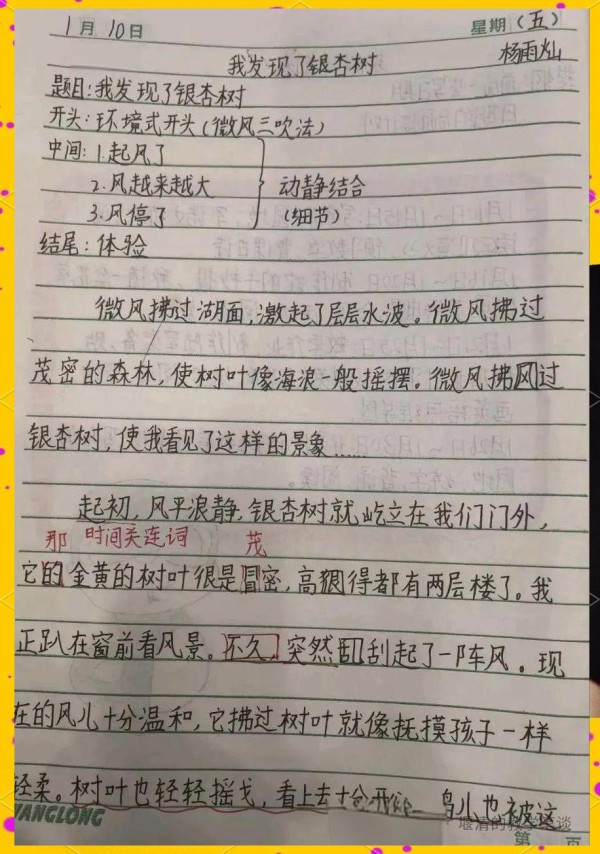 1月10日 星期（五）
我发现了银杏树 杨雨灿
题目:我发现了银杏树
开头:环境式开头(微风三吹法)
中间:1.起风了
2.风越来越大 动静结合
3.风停了 (细节)
结尾:体验
微风拂过湖面,激起了层层水波。微风拂过
茂密的森林,使树叶像海浪一般摇摆。微风拂过
银杏树,使我看见了这样的景象……
起初,风平浪静,银杏树就屹立在我们门外,
那 时间关连词 茂
它的金黄的树叶很是冒密,高得都有两层楼了。我
正趴在窗前看风景。不久突然刮起了一阵风。现
在的风儿十分温和,它拂过树叶就像抚摸孩子一样
轻柔。树叶也轻轻摇,看上去十分 鸟儿也被这
YANGLONG
堰清的
谈
第 页